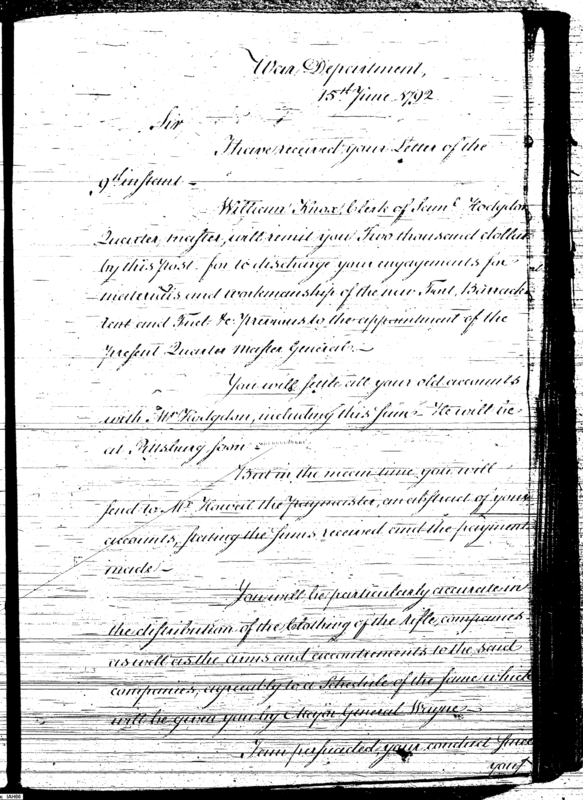 War Department,
15th June 1792
Sir
I have received your Letter of the
9th instant —
William Knox, Clerk of Saml Hodgdon
Quarter master, will remit you Two thousand dollars
by this post - for to discharge your engagements for
materials and workmanship of the new Fort, Barrack
rent and Fuel &c previous to the appointment of the
present Quarter Master General. —
You will settle all your old accounts
with Mr Hodgdon, including this sum - He will be
at Pittsburg soon -
But in the mean time you will
send to Mr Howell the Paymaster, an abstract of your
accounts, stating the sums received and the payment
made —
You will be particularly accurate in
the distribution of the Clothing of the Rifle companies
as well as the arms and accoutrements to the said
companies, agreably to a Schedule of the same which
will be given you by Major General Wayne —
I am persuaded your conduct since
your
IAH66